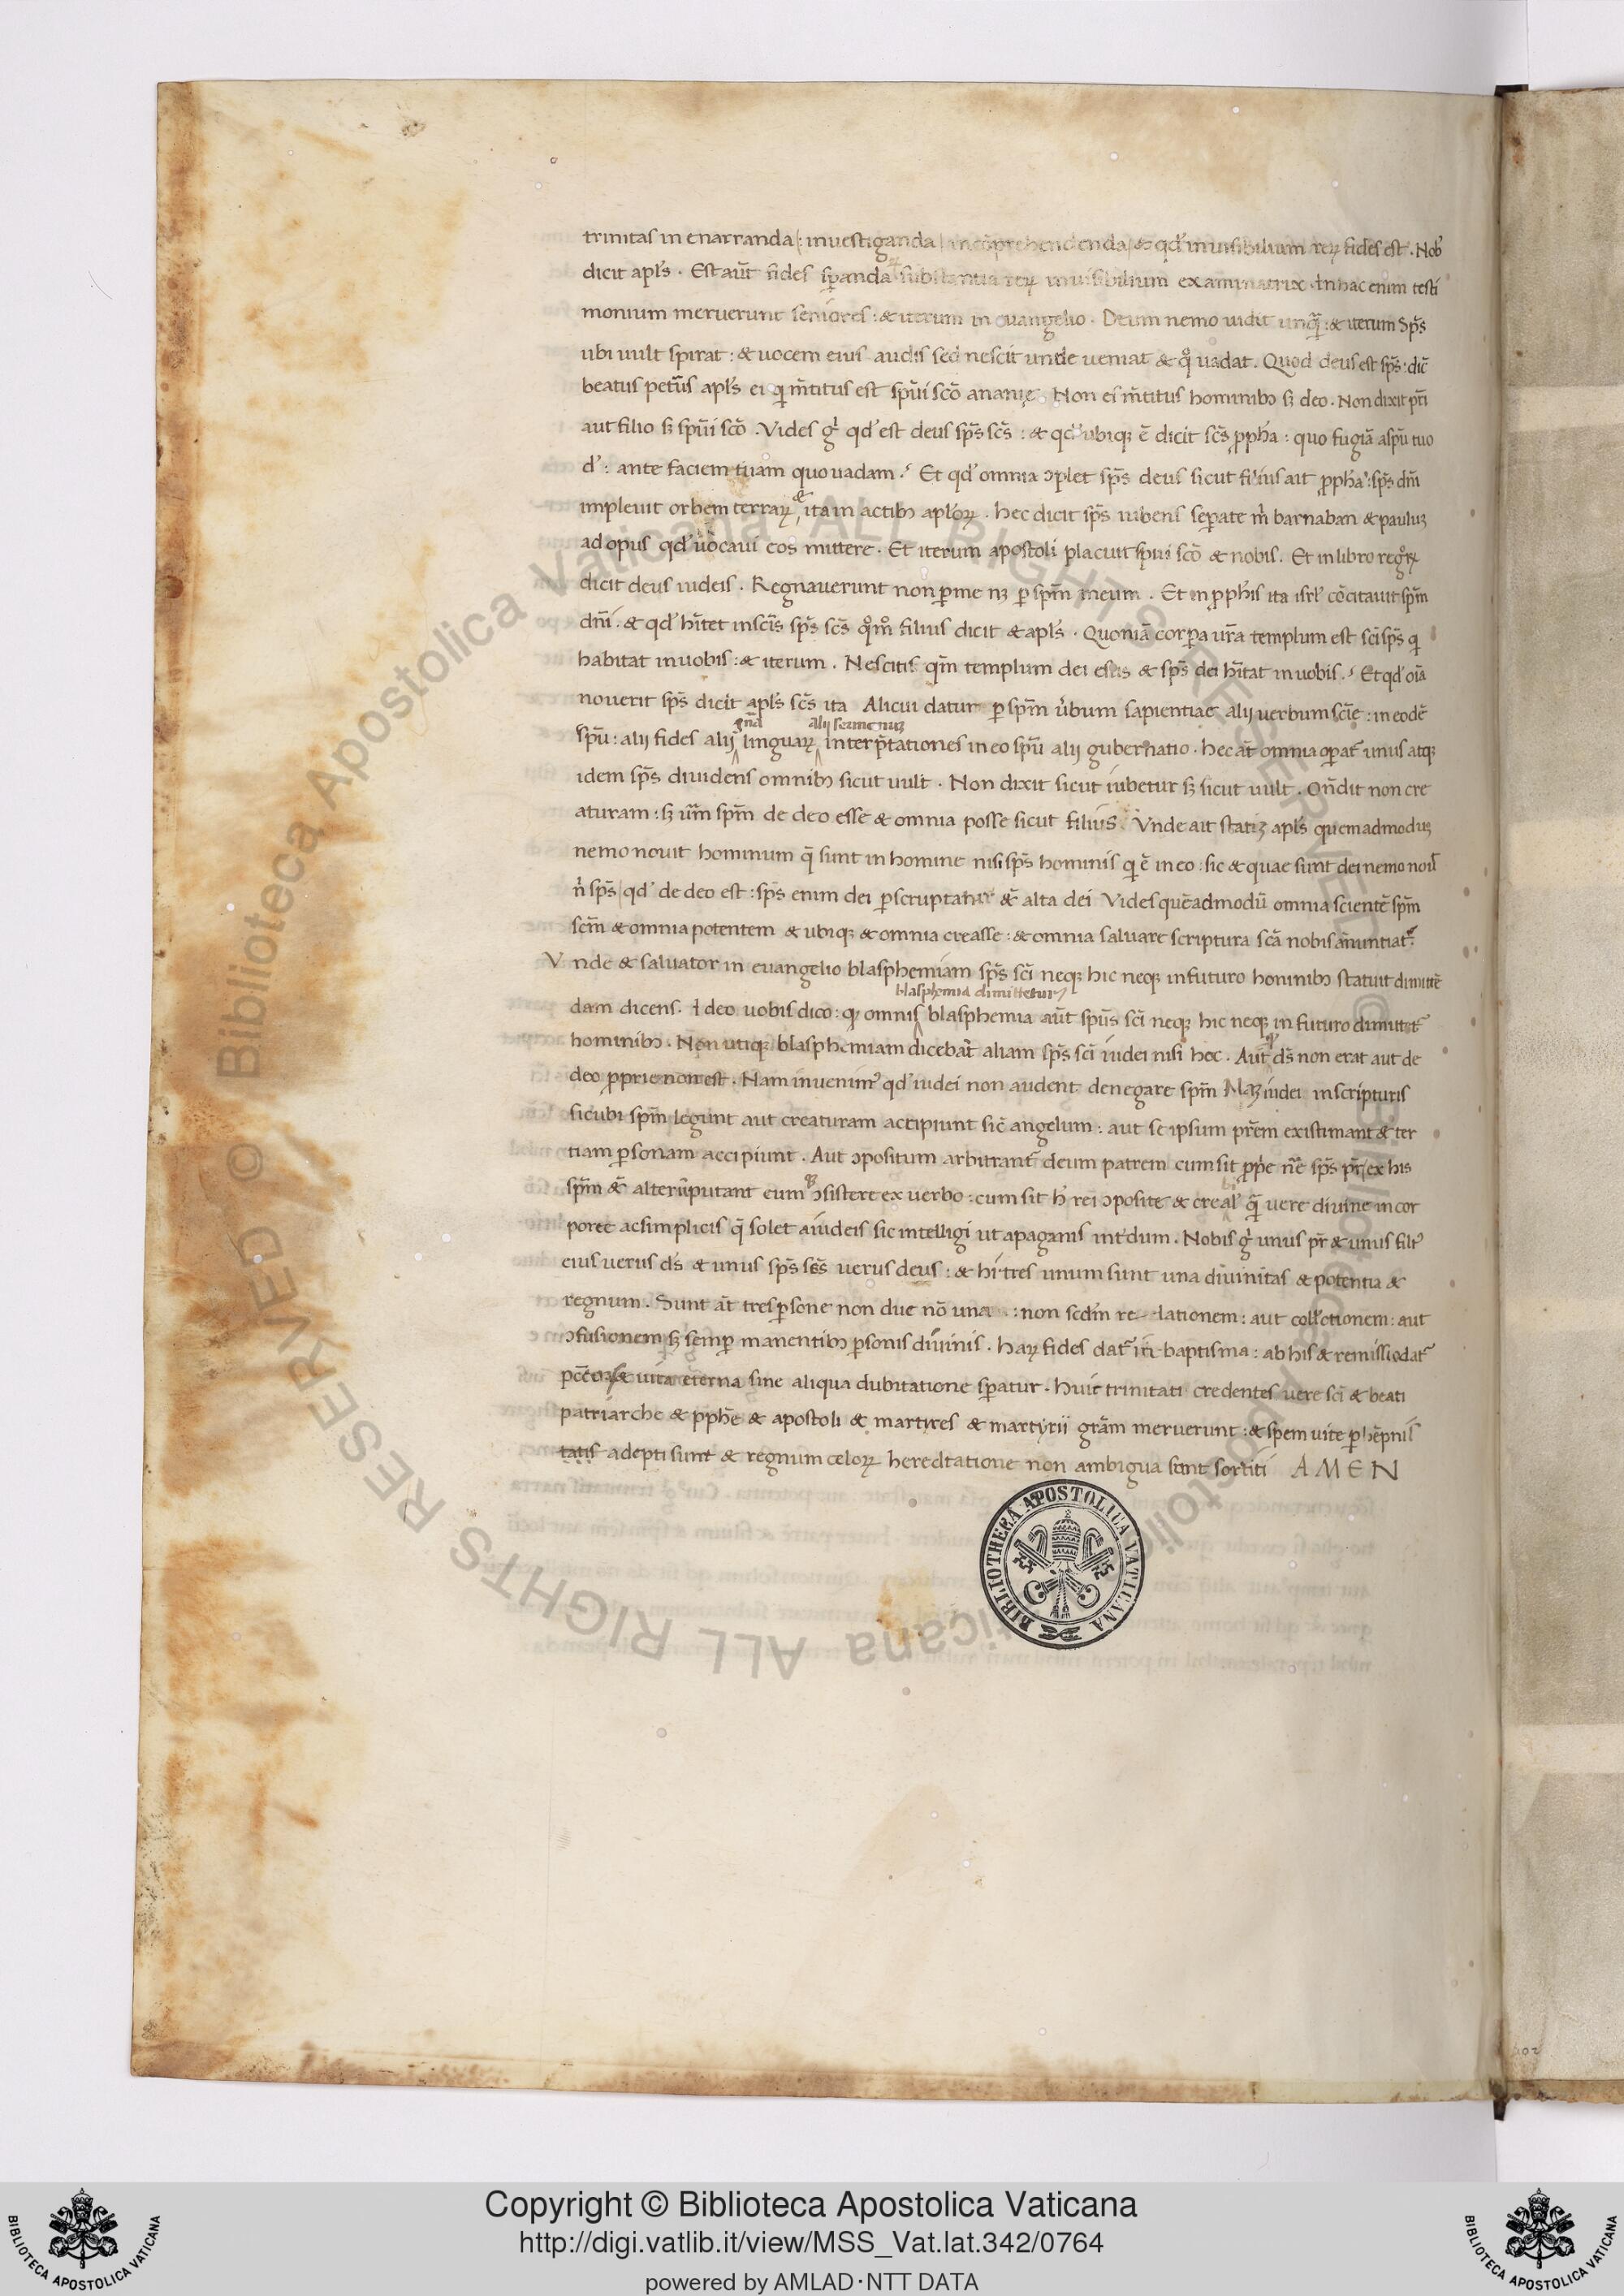 trinitas in enarranda: inuestiganda incõprehendenda & qd' inuisibilium reꝝ fides est. Nob'
dicit apl's. Est aut̃ fides sꝑanda substantia reꝝ inuisibilium examinatrix. In hac enim testi
monium meruerunt seniores: & iterum in euangelio. Deum nemo uidit unq̃: & iterum Sp̃s
ubi uult spirat: & uocem eius audis sed nescit unde ueniat & qͦ uadat. Quod deus est sp̃s. dic̃
beatus petrus apl's ei qi m̃titus est sp̃ui sc̃o ananię Non ei m̃titus hominibꝫ sꝫ deo. Non dixit pr̃i
aut filio sꝫ sp̃ui sc̃o. Vides gͥ qd' est deus sp̃s sc̃s: & qd' ubiqꝫ ẽ dicit sc̃s ꝓph̃a: quo fugiã a sp̃u tuo
d': ante faciem tuam quo uadam. Et qd' omnia ↄplet sp̃s deus sicut filius ait ꝓph̃a: sp̃s dñi
impleuit orbem terraꝝ & ita in actibꝫ aploꝝ. hec dicit sp̃s iubens seꝑate m̃ barnaban & pauluꝫ
ad opus qd' uocaui eos mittere. Et iterum apostoli placuit sp̃ui sc̃o & nobis. Et in libro regͦꝝ
dicit deus iudeis. Regnauerunt non ꝑ me nꝫ ꝑ sp̃m meum. Et in ꝓph̃is ita isrl' cõcitauit sp̃m
dñi. & qd' h̃itet in sc̃is sp̃s sc̃s qͦmͦ filius dicit & apl's. Quoniã corꝑa ur̃a templum est sc̃i sp̃s qi
habitat in uobis: & iterum. Nescitis qm̃ templum dei estis & sp̃s dei h̃itat in uobis. Et qd' oĩa
nouerit sp̃s dicit apl's sc̃s ita Alicui datur ꝑ sp̃m ũbum sapientiae alij uerbum scĩe: in eodẽ
gña alij sermonuꝫ
sp̃u: alij fides alij linguaꝝ interp̃tationes in eo sp̃u alij gubernatio. hec at̃ omnia oꝑat' unus atqꝫ
idem sp̃s diuidens omnibꝫ sicut uult. Non dixit sicut iubetur sꝫ sicut uult. Oñdit non cre
aturam: sꝫ um̃ sp̃m de deo esse & omnia posse sicut filius. Vnde ait statiꝫ apl's quemadmoduꝫ
nemo nouit hominum q̃ sunt in homine nisi sp̃s hominis qi ẽ in eo: sic & quae sunt dei nemo noũ
ñ sp̃s qd' de deo est: sp̃s enim dei ꝑscruptatur & alta dei Vides quẽadmodũ omnia scientẽ sp̃m
sc̃m & omnia potentem & ubiqꝫ & omnia creasse: & omnia saluare scriptura sc̃a nobis ãnuntiat.
Vnde & saluator in euangelio blasphemiam sp̃s sc̃i neqꝫ hic neqꝫ in futuro hominibꝫ statuit dimittẽ
blasphemia dimittetur
dam dicens. Ideo uobis dico: qꝫ omnis blasphemia aut̃ sp̃us sc̃i neqꝫ hic neqꝫ in futuro dimittet'
hominibꝫ. Non utiqꝫ blasphemiam dicebat aliam sp̃s sc̃i iudei nisi hec. Aut ds̃ non erat aut de
deo ꝓprie non est. Nam inuenim' qd' iudei non audent denegare sp̃m Naꝫ iudei in scripturis
sicubi sp̃m legunt aut creaturam accipiunt sic̃ angelum: aut se ipsum pr̃em existimant & ter
tiam ꝑsonam accipiunt. Aut ↄpositum arbitrant' deum patrem cum sit ꝓp̃e sp̃s pr̃ ex his
sp̃m & alterũ putant eum ↄsistere ex uerbo: cum sit h' rei ↄposite & creabil' q̃ uere diuine incor
poree ac simplicis q̃ solet a iudeis sic intelligi ut a paganis int'dum. Nobis gͥ unus pr̃ & unus fili'
eius uerus ds̃ & unus sp̃s sc̃s uerus deus: & hi tres unum sunt una diuinitas & potentia &
regnum. Sunt at̃ tres ꝑsone non due nõ una: non sedm̃ re-lationem: aut collectionem: aut
ↄfusionem sꝫ semꝑ manentibꝫ ꝑsonis diuinis. haꝝ fides dat' in baptisma: ab his & remissio dat'
pcc̃oꝝ & uita eterna sine aliqua dubitatione sꝑatur. huic trinitati credentes uere sc̃i & beati
patriarche & pph̃e & apostoli & martyres & martyrii grãm meruerunt: & spem uite
tatis adepti sunt & regnum celoꝝ hereditatione non ambigua sunt sortiti AMEN
BIBLIOTHECA APOSTOLICA VATICANA
Copyright © Biblioteca Apostolica Vaticana
http://digi.vatlib.it/view/MSS_Vat.lat.342/0764
powered by AMLAD·NTT DATA